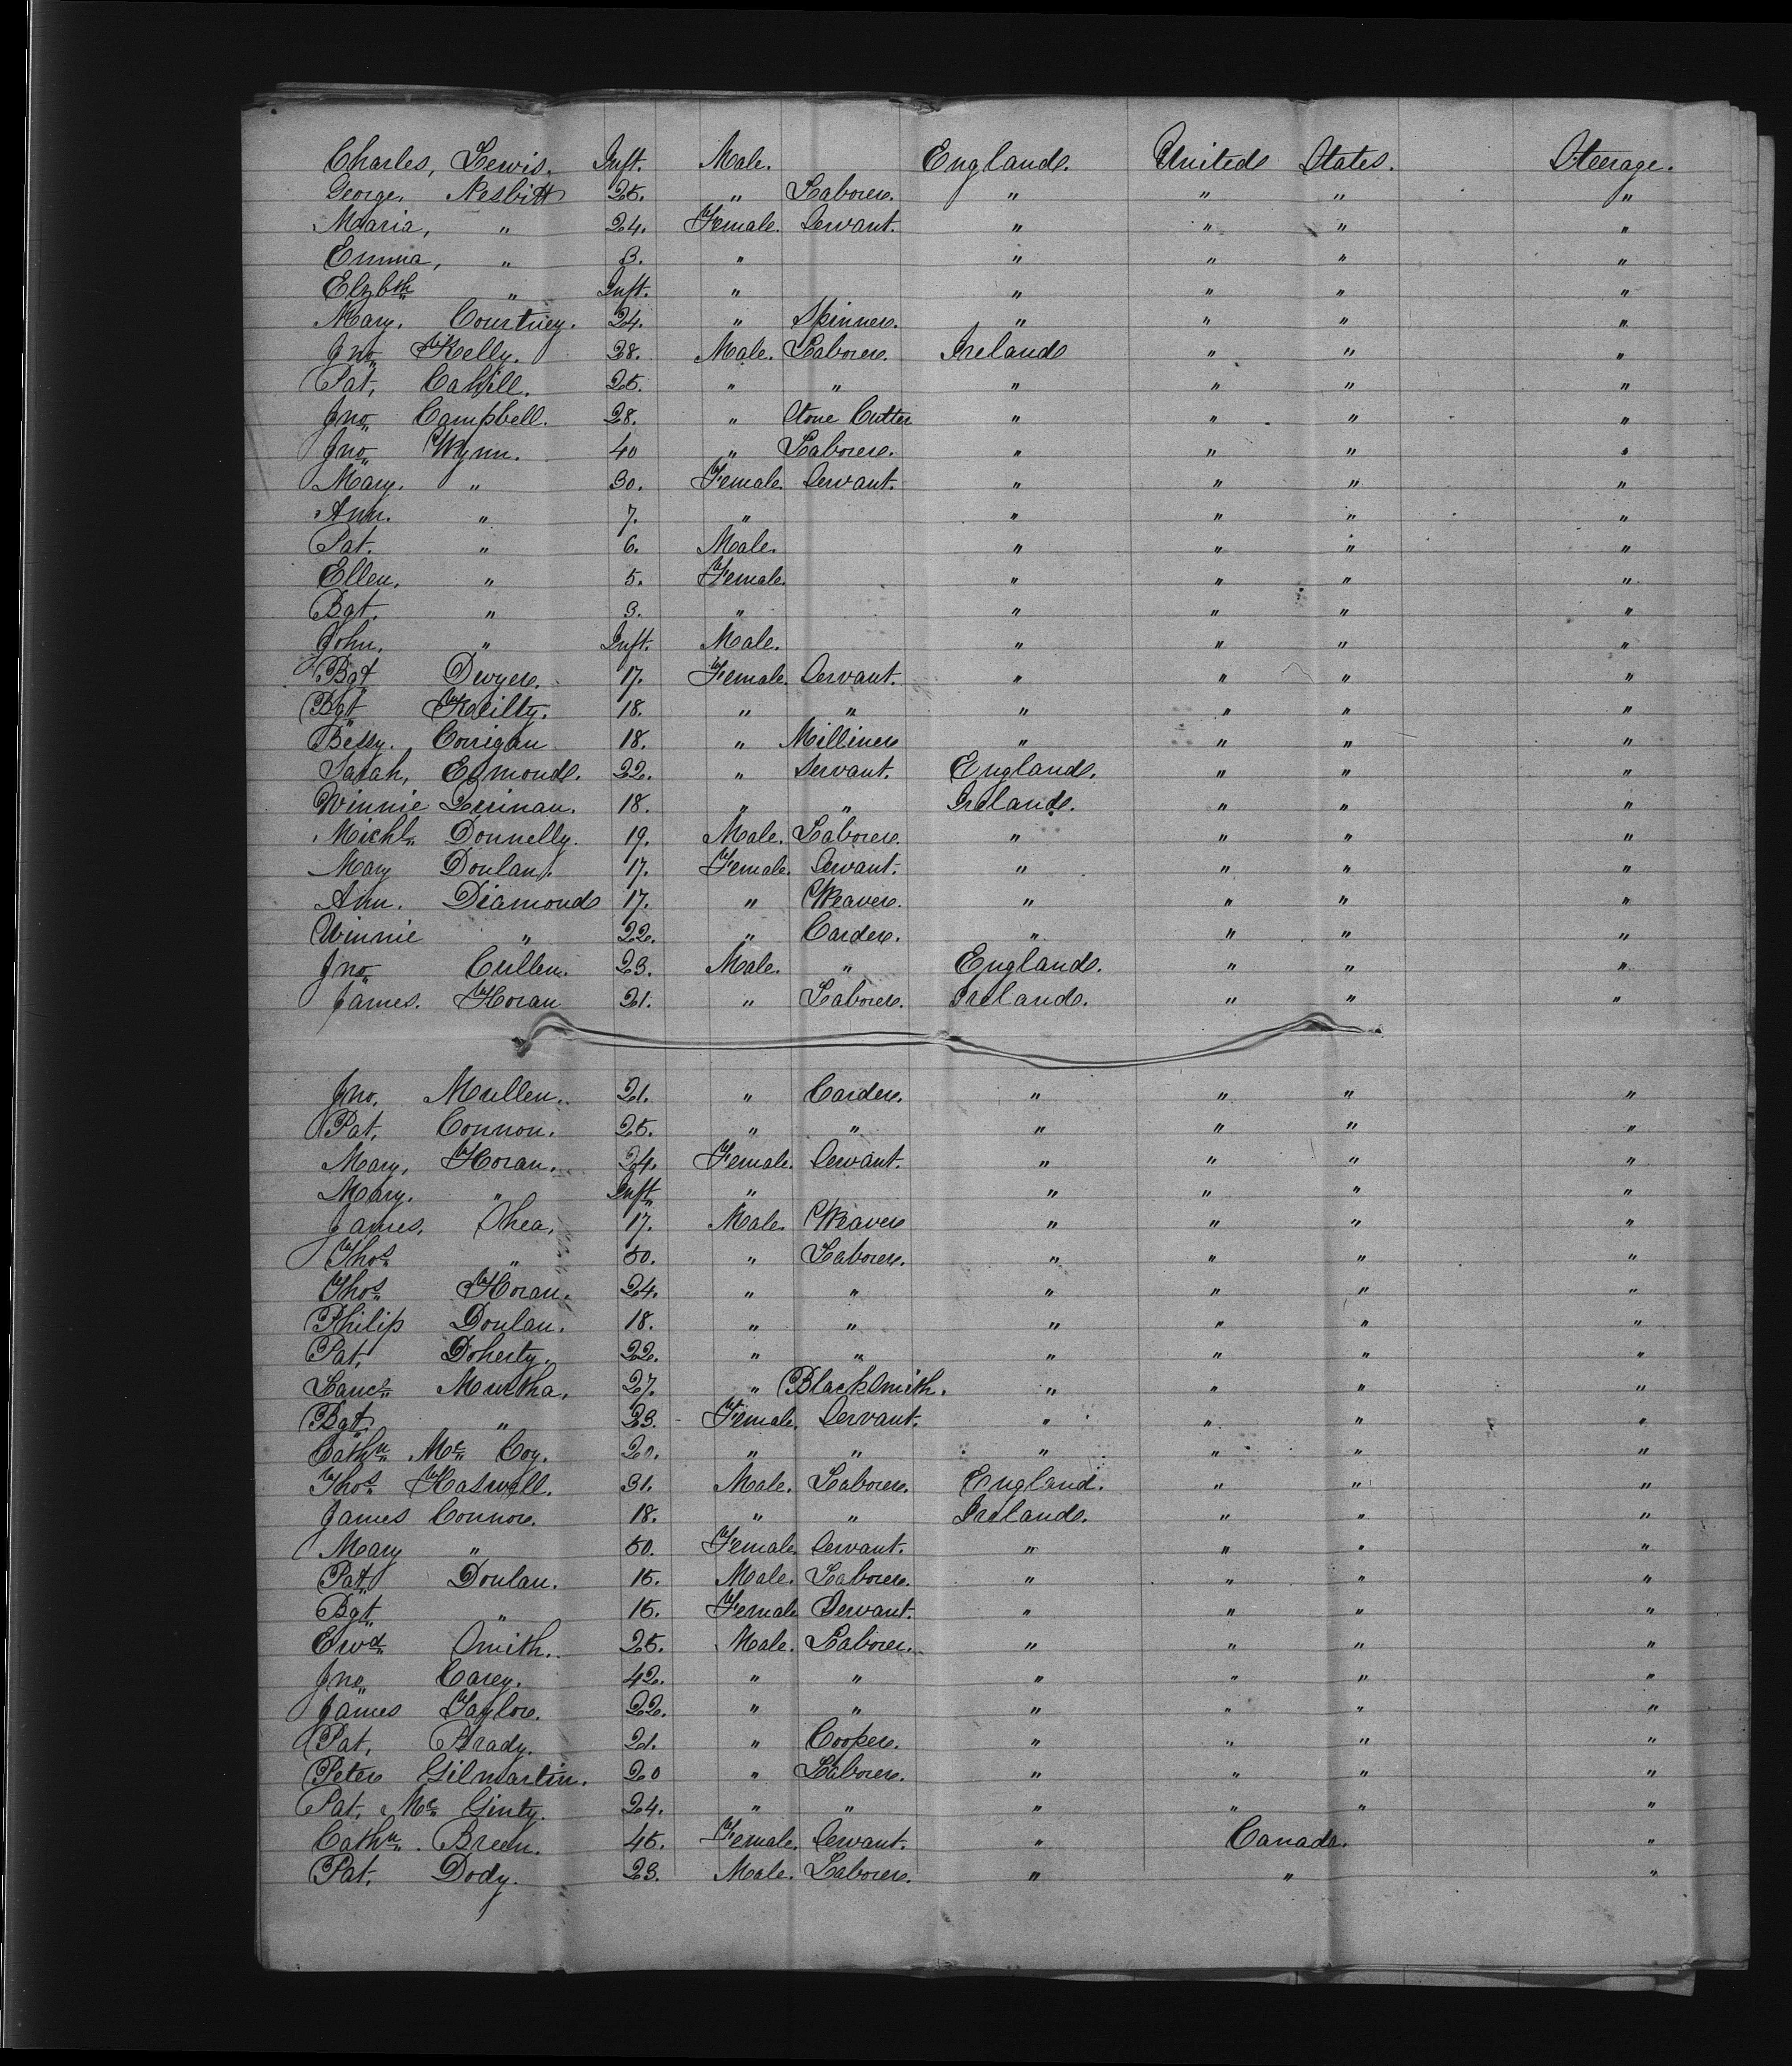 Charles, Lewis. Inft. Male. England. United States. Steerage.
George. Nesbitt 25. " Laborer. " " " "
Maria, " 24. Female. Servant. " " " "
Emma, " 3. " " " " "
Elzbth " Inft. " " " " "
Mary. Courtney. 24. " Spinner. " " " "
Jno Kelly. 38. Male. Laborer. Ireland " " "
Pat, Cahill. 25. " " " " " "
Jno Campbell. 28. " Stone Cutter " " " "
Jno Wynn. 40 " Laborer. " " " "
Mary. " 30. Female. Servant. " " " "
Ann. " 7. " " " " "
Pat. " 6. Male. " " " "
Ellen, " 5. Female. " " " "
Bgt. " 3. " " " " "
John. " Inft. Male. " " " "
Bgt Dwyer. 17. Female. Servant. " " " "
Bgt Reilty. 18. " " " " " "
Bessy. Corrigan 18. " Milliner " " " "
Sarah, Edmonds. 22. " Servant. England. " " "
Winnie Lerinan. 18. " " Ireland. " " "
Michl Donnelly. 19. Male. Laborer. " " " "
Mary Donlan. 17. Female. Servant. " " " "
Ann. Diamond 17. " Weaver. " " " "
Winnie " 22. " Carder. " " " "
Jno Cullen. 23. Male. " England. " " "
James. Horan 21. " Laborer. Ireland. " " "
Jno. Mullen. 21. " Carder. " " " "
Pat, Connon. 25. " " " " " "
Mary, Horan. 24. Female. Servant. " " " "
Mary. " Inft. " " " " "
James, Shea, 17. Male. Weaver " " " "
Thos " 50. " Laborer. " " " "
Thos Horan. 24. " " " " " "
Philip Donlan. 18. " " " " " "
Pat, Doherty. 22. " " " " " "
Lance Murtha. 27. " BlackSmith. " " " "
Bgt " 23. Female. Servant. " " " "
Cathn Mc Coy. 20. " " " " " "
Thos Haswell. 31. Male. Laborer. England. " " "
James Connor. 18. " " Ireland. " " "
Mary " 50. Female. Servant. " " " "
Pat Donlan. 15. Male. Laborer. " " " "
Bgt " 15. Female Servant. " " " "
Ewd Smith. 25. Male. Laborer. " " " "
Jno Carey. 42. " " " " " "
James Taylor. 22. " " " " " "
Pat, Brady. 21. " Cooper. " " " "
Peter Gilmartin. 20 " Laborer. " " " "
Pat, Mc Ginty. 24. " " " " " "
Cathn. Breen. 45. Female. Servant. " Canada. "
Pat, Dody. 23. Male. Laborer. " " "